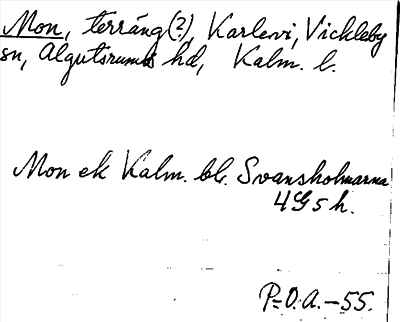 Mon, terräng(?), Karlevi, Vickleby
sn, Algutsrums hd, Kalm. l.
Mon ek Kalm. bl. Svansholmarna
4G5h.
P-O.A.-55.